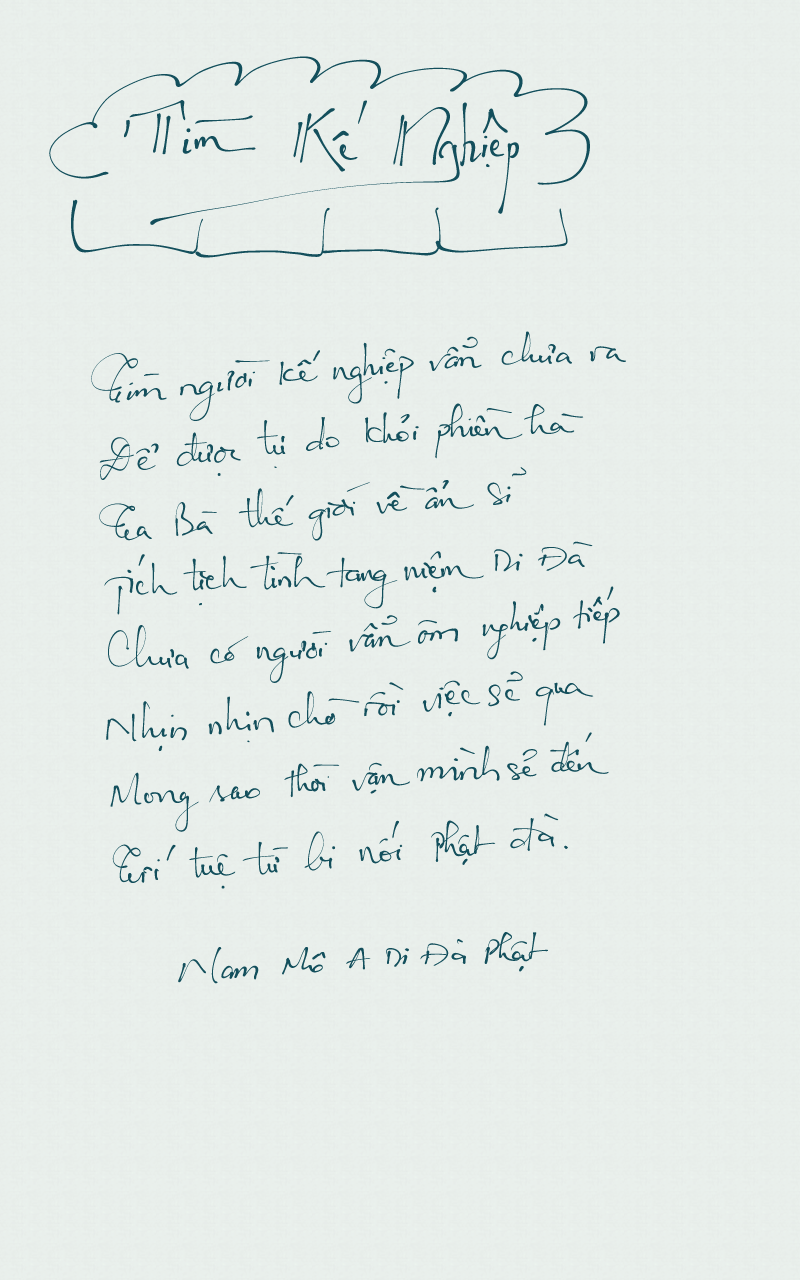 Tìm Kế Nghiệp
Tìm người kế nghiệp vẩn chưa ra
Để được tự do khỏi phiền hà
Ta Bà thế giới về ẩn sỉ
Tích tịch tình tang niệm Di Đà
Chưa có người vẩn ôm nghiệp tiếp
Nhịn nhịn chờ rồi việc sẻ qua
Mong sao thời vận mình sẻ đến
Trí tuệ từ bi nối phật đà.
Nam Mô A Di Đà Phật